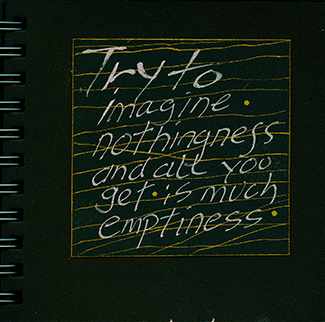 Try to
imagine
nothingness
and all you
get is much
emptiness